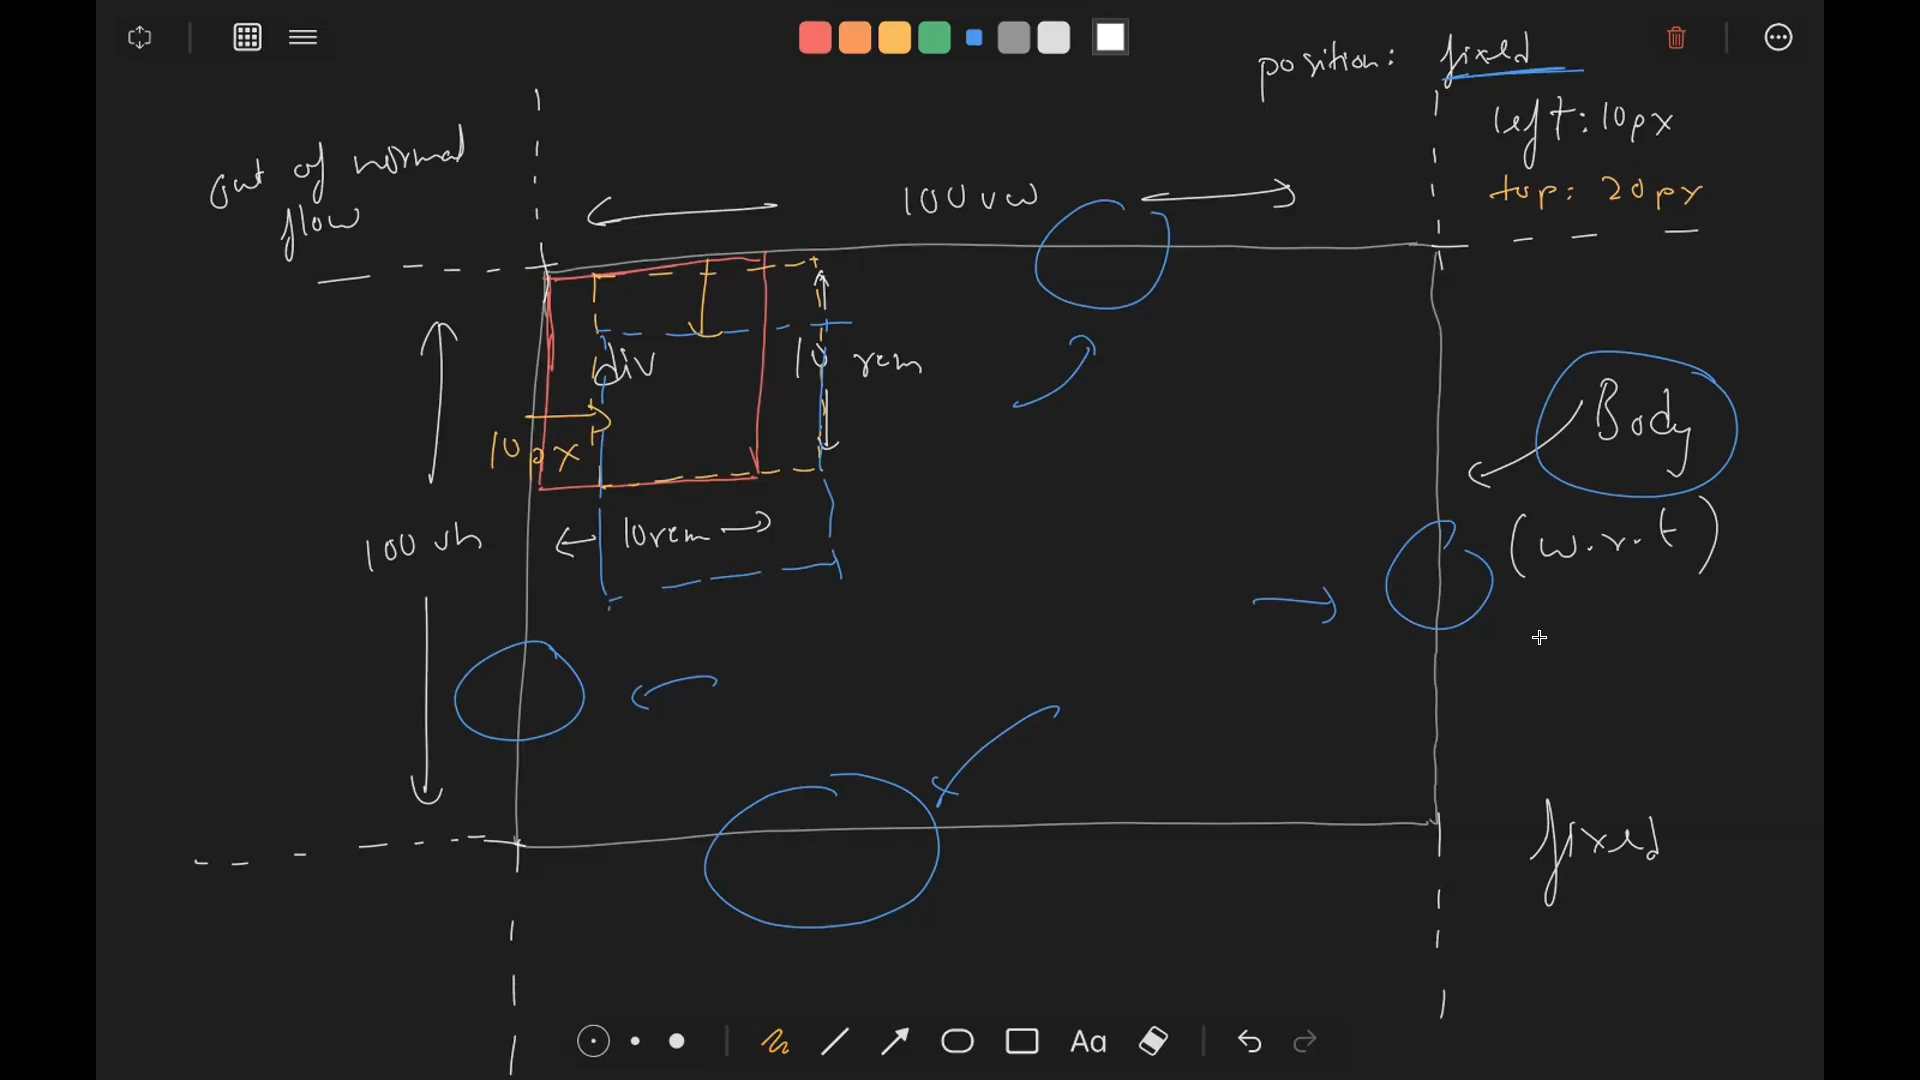 position: fixed
left: 10px
top: 20px
out of normal
flow
100 vw
div
10 rem
10px
10rem
100 vh
Body
(w.r.t)
fixed
Aa